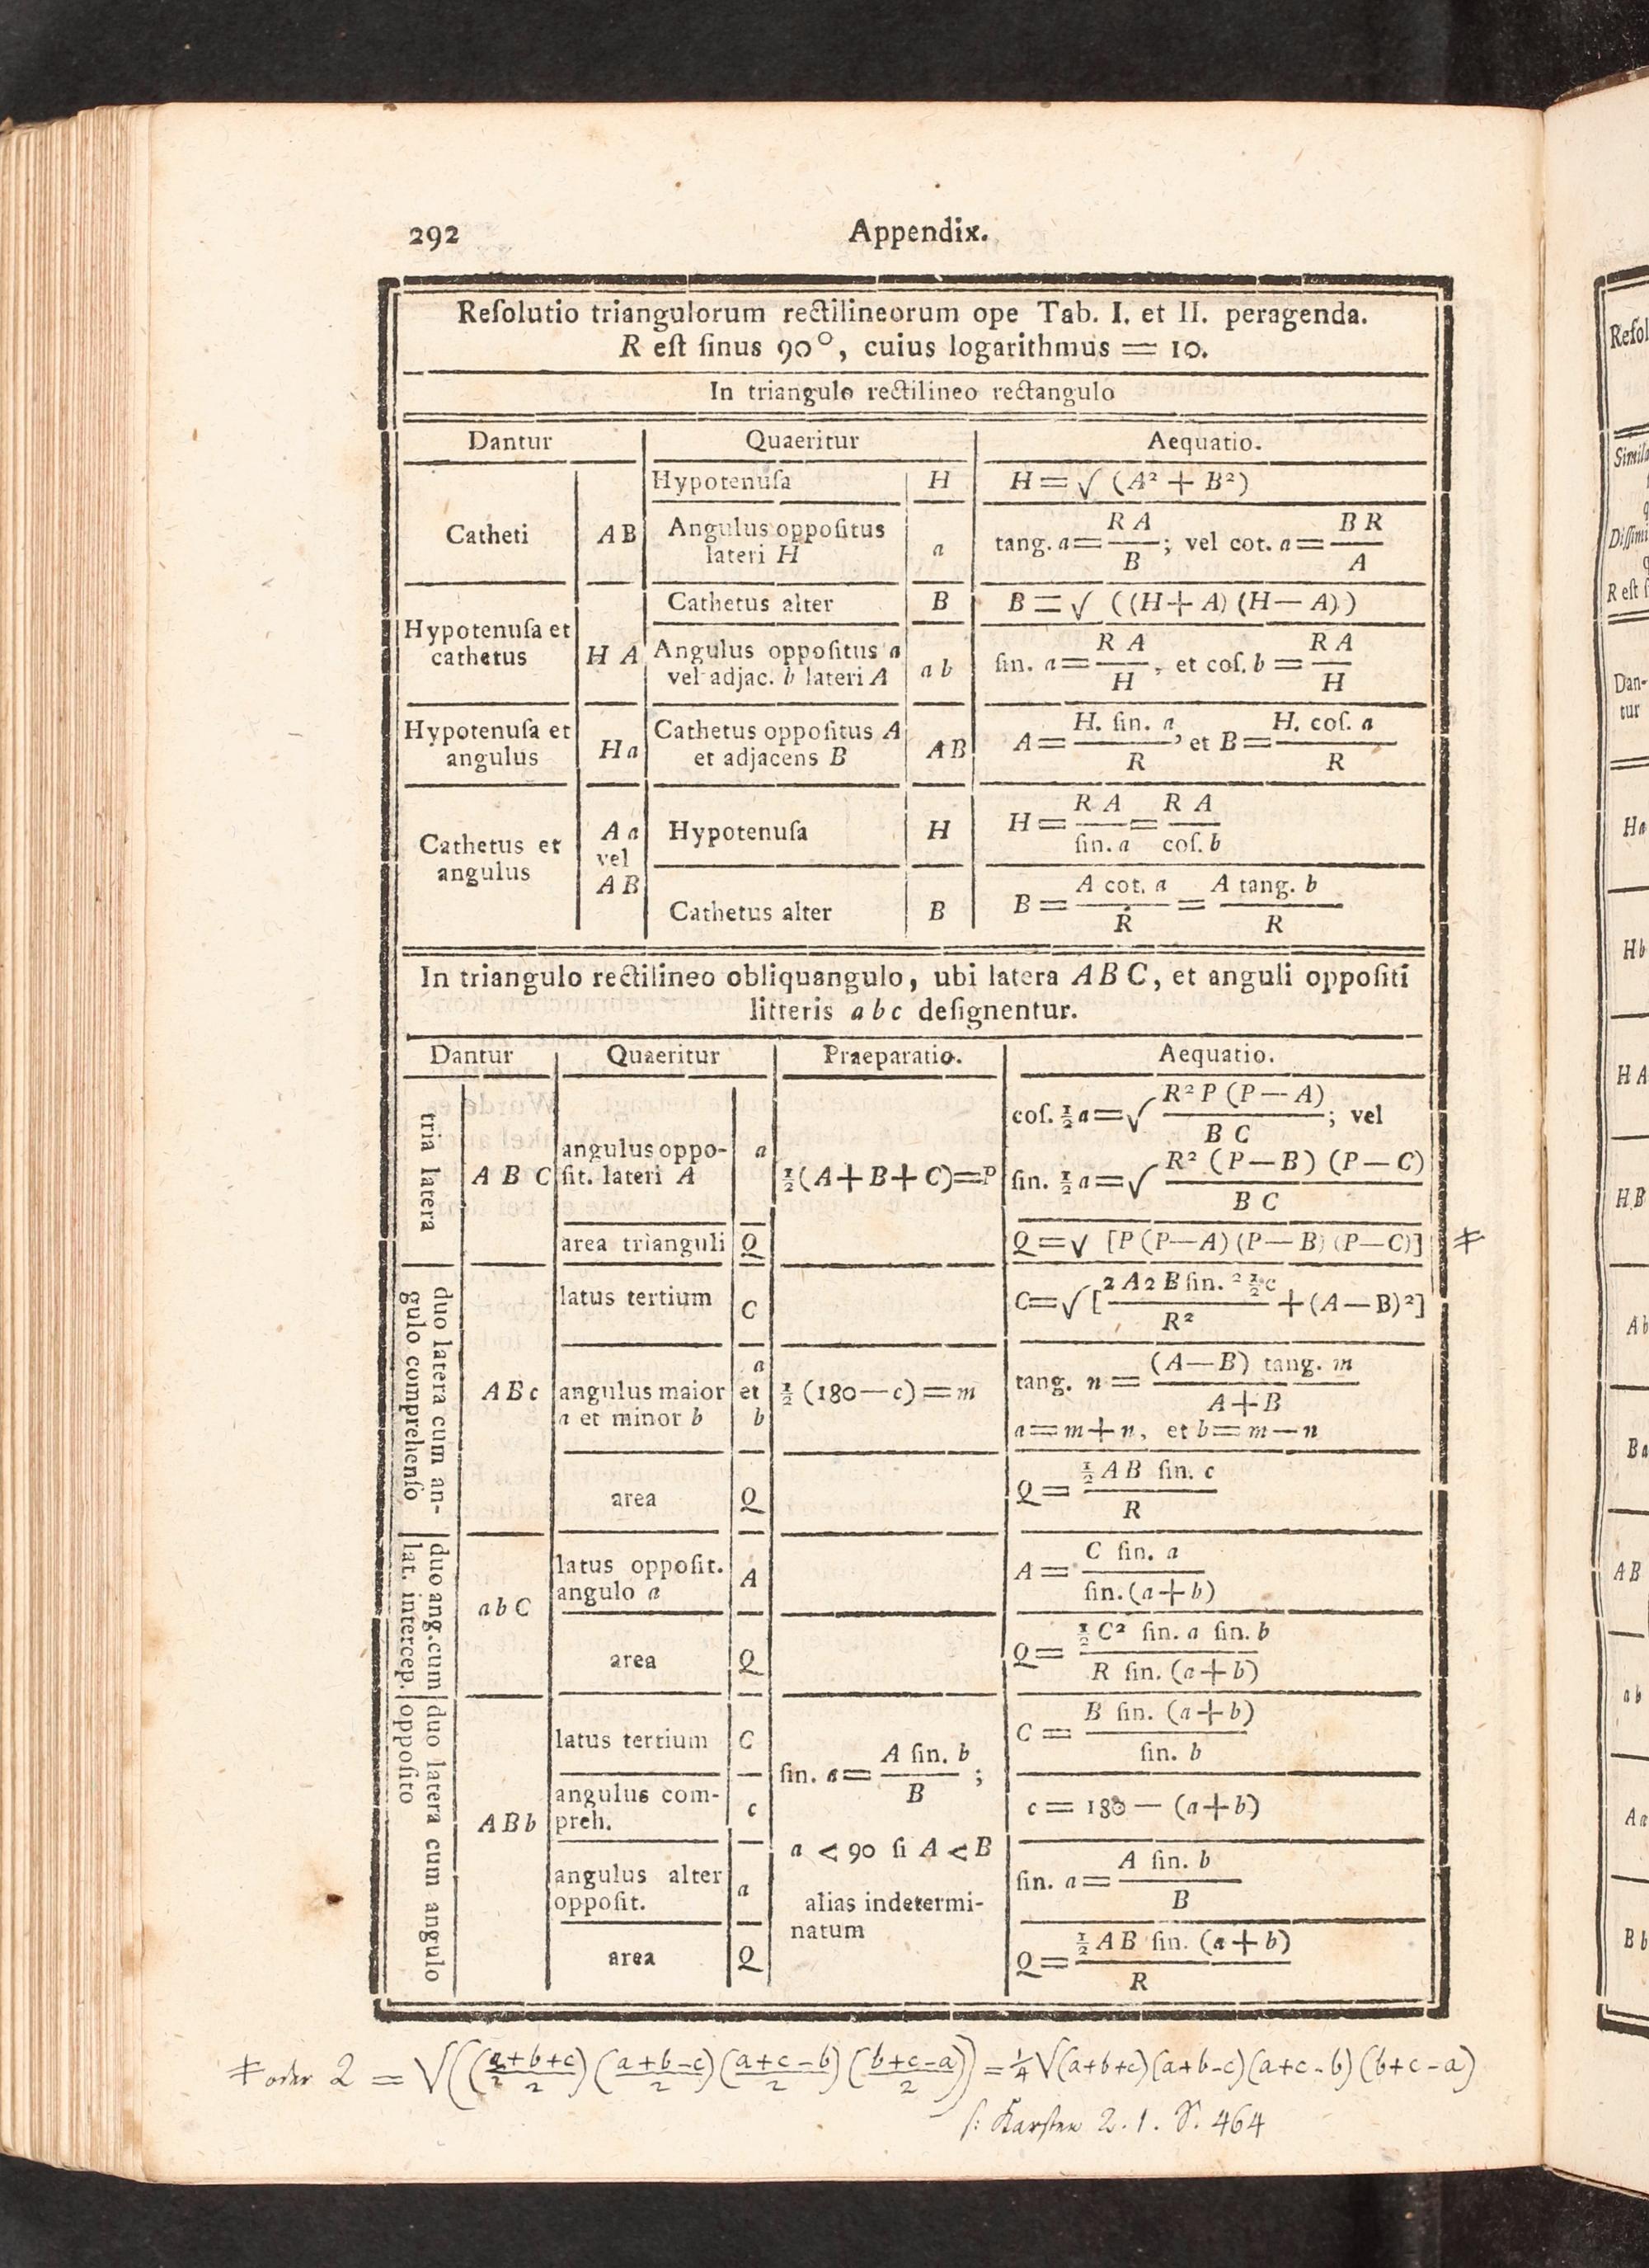 292 Appendix.
Reſolutio triangulorum rectilineorum ope Tab. I. et II. peragenda.
R eſt ſinus 90°, cuius logarithmus = 10.
In triangulo rectilineo rectangulo
Dantur Quaeritur Aequatio.
Catheti AB Hypotenuſa H H = √ (A² + B²)
Angulus oppoſitus lateri H a tang. a = R A / B ; vel cot. a = B R / A
Hypotenuſa et cathetus H A Cathetus alter B B = √ ((H + A) (H — A))
Angulus oppoſitus a vel adjac. b lateri A a b ſin. a = R A / H , et coſ. b = R A / H
Hypotenuſa et angulus H a Cathetus oppoſitus A et adjacens B AB A = H. ſin. a / R , et B = H. coſ. a / R
Cathetus et angulus A a vel A B Hypotenuſa H H = R A / ſin. a = R A / coſ. b
Cathetus alter B B = A cot. a / R = A tang. b / R
In triangulo rectilineo obliquangulo, ubi latera A B C, et anguli oppoſiti
litteris a b c deſignentur.
Dantur Quaeritur Praeparatio. Aequatio.
tria latera A B C angulus oppo-ſit. lateri A a ½ (A + B + C) = P coſ. ½ a = √ R² P (P — A) / B C ; vel
ſin. ½ a = √ R² (P — B) (P — C) / B C
area trianguli Q Q = √ [P (P — A) (P — B) (P — C)] ≠
duo latera cum an-gulo comprehenſo A B c latus tertium C C = √ [ 2 A 2 B ſin. ² ½ c / R² + (A — B)²]
angulus maior a et minor b a et b ½ (180 — c) = m tang. n = (A — B) tang. m / A + B
a = m + n, et b = m — n
area Q Q = ½ A B ſin. c / R
duo ang. cum lat. intercep. a b C latus oppoſit. angulo a A A = C ſin. a / ſin. (a + b)
area Q Q = ½ C² ſin. a ſin. b / R ſin. (a + b)
duo latera cum angulo oppoſito A B b latus tertium C ſin. a = A ſin. b / B ; C = B ſin. (a + b) / ſin. b
angulus com-preh. c c = 180 — (a + b)
a < 90 ſi A < B
angulus alter oppoſit. a alias indetermi-natum ſin. a = A ſin. b / B
area Q Q = ½ A B ſin. (a + b) / R
≠ oder 2 = √(((a+b+c)/2) ((a+b-c)/2) ((a+c-b)/2) ((b+c-a)/2)) = ¼ √(a+b+c)(a+b-c)(a+c-b)(b+c-a)
ſ: Karsten 2. 1. S. 464
Reſol
Simila
Diſſimi
R eſt ſ
Dan-
tur
Ha
Hb
H A
H B
A b
B a
A B
a b
A a
B b